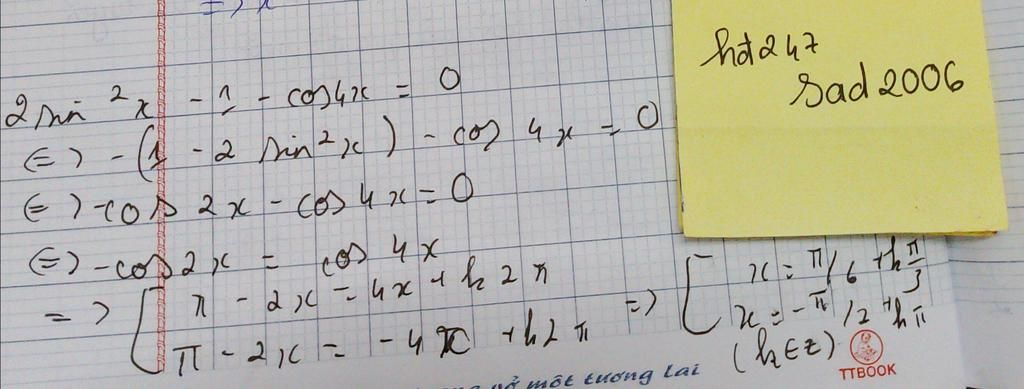 2 sin²x - 1 - cos4x = 0
<=> -(1 - 2 sin²x) - cos 4x = 0
<=> -cos 2x - cos 4x = 0
<=> -cos 2x = cos 4x
=> [ π - 2x = 4x + k2π
π - 2x = -4x + k2π
=> [ x = π/6 + k π/3
x = -π/2 + kπ
(k ∈ Z)
hdt247
sad2006
một tương lai
TTBOOK